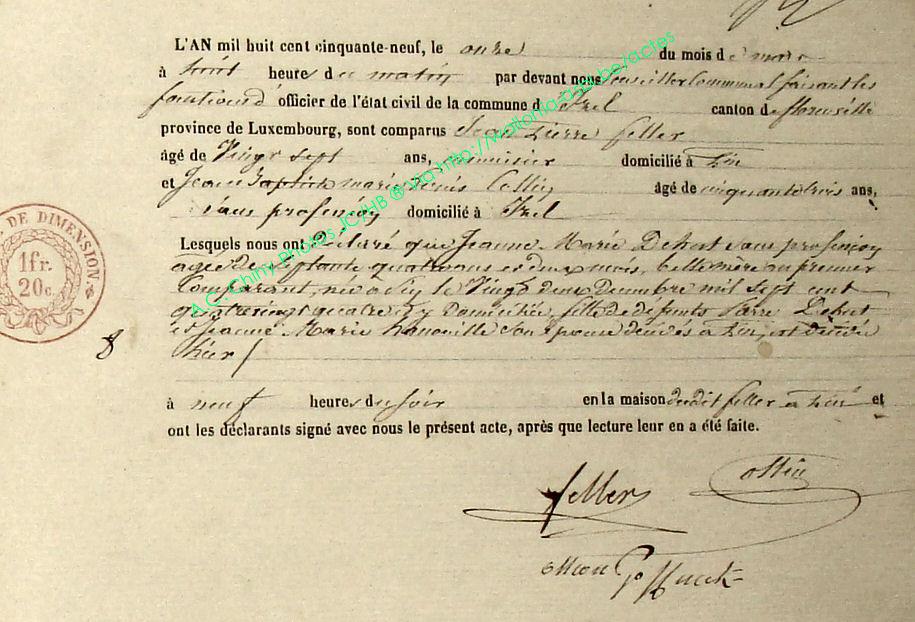 L'AN mil huit cent cinquante-neuf, le onze du mois de mars
à huit heures du matin par devant nous conseiller Communal faisant les
fonctions d' officier de l'état civil de la commune d canton de florenville
province de Luxembourg, sont comparus Jean Pierre feller
âgé de Vingt sept ans, menuisier domicilié à
et Jean Baptiste marie denis Collin âgé de cinquante trois ans,
sans profession domicilié à
Lesquels nous ont Déclaré que Jeanne Marie Dehut sans profession
agée de septante quatre ans et deux mois, belle mère au premier
Comparant, née a le Vingt deux Decembre mil sept cent
quatrevingt quatre et y Domiciliée, fille de défunts Pierre Dehut
et Jeanne Marie son épouse décédés à est décédée
hier /
à neuf heures du soir en la maison dudit feller a et
ont les déclarants signé avec nous le présent acte, après que lecture leur en a été faite.
feller Collin
DE DIMENSION
1 fr.
20 c.
A.C. Chiny Photos JCJHB ® via http://wallonia-asbl.be/actes